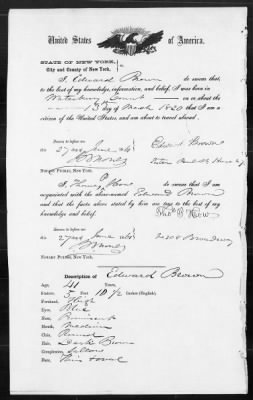 United States of America.
STATE OF NEW YORK,
City and County of New York.
I, Edward Brown do swear that,
to the best of my knowledge, information, and belief, I was born in
Waterbury on or about the
13th day of March 1820 that I am a
citizen of the United States, and am about to travel abroad.
Sworn to before me
this 27 day June 1861
Edward Brown
NOTARY PUBLIC, NEW YORK.
I, Thomas P How do swear that I am
acquainted with the above-named Edward Brown
and that the facts above stated by him are true to the best of my
knowledge and belief.
Thos P How
Sworn to before me
this 27 day June 1861
Broadway
NOTARY PUBLIC, NEW YORK.
Description of Edward Brown
Age, 41 Years
Stature, 5 Feet 10 1/2 Inches (English).
Forehead, High
Eyes, Blue
Nose, Prominent
Mouth, Medium
Chin, Round
Hair, Dark Brown
Complexion, Sallow
Face, Thin